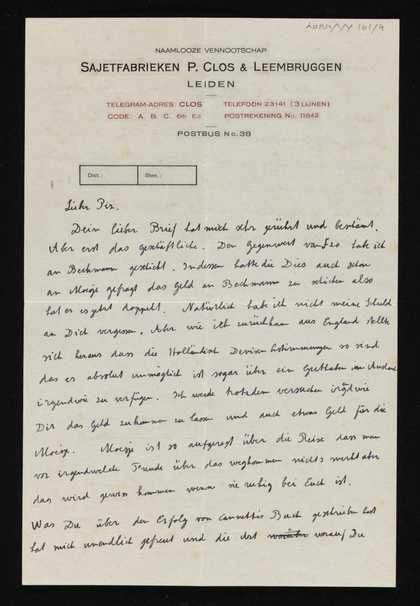 NAAMLOOZE VENNOOTSCHAP
SAJETFABRIEKEN P. CLOS & LEEMBRUGGEN
LEIDEN
TELEGRAM-ADRES: CLOS TELEFOON 23141 (3 LIJNEN)
CODE: A. B. C. 6th Ed POSTREKENING No. 11842
POSTBUS No. 38
Dict.: Steno.:
Dein lieber Brief hat mich sehr gerührt und
Aber erst das geschäftliche. Den Gegenwert van £20 hab ich
an Beckmann geschickt. Indessen hatte die Dies auch schon
an Moesje gefragt das Geld an Beckmann zu schicken also
hat er es jetzt doppelt. Natürlich hab ich nicht meine Schuld
an Dich vergessen. Aber wie ich zurückkam aus England stellte
sich heraus dass die Holländisch Devisenbestimmungen so sind
das es absolut unmöglich ist sogar über ein Guthaben im Ausland
irgendwie zu verfügen. Ich werde trotzdem versuchen irgdwie
Dir das Geld zukommen zu lassen und auch etwas Geld für die
Moesje. Moesje ist so aufgeregt über die Reise dass man
vor irgendwelche Freude über das wegkommen nichts merkt aber
das wird gewiss kommen wenn sie ruhig bei Euch ist.
Was Du über den Erfolg von Canettis Buch geschrieben hast
hat mich unendlich gefreut und die Art worauf Du